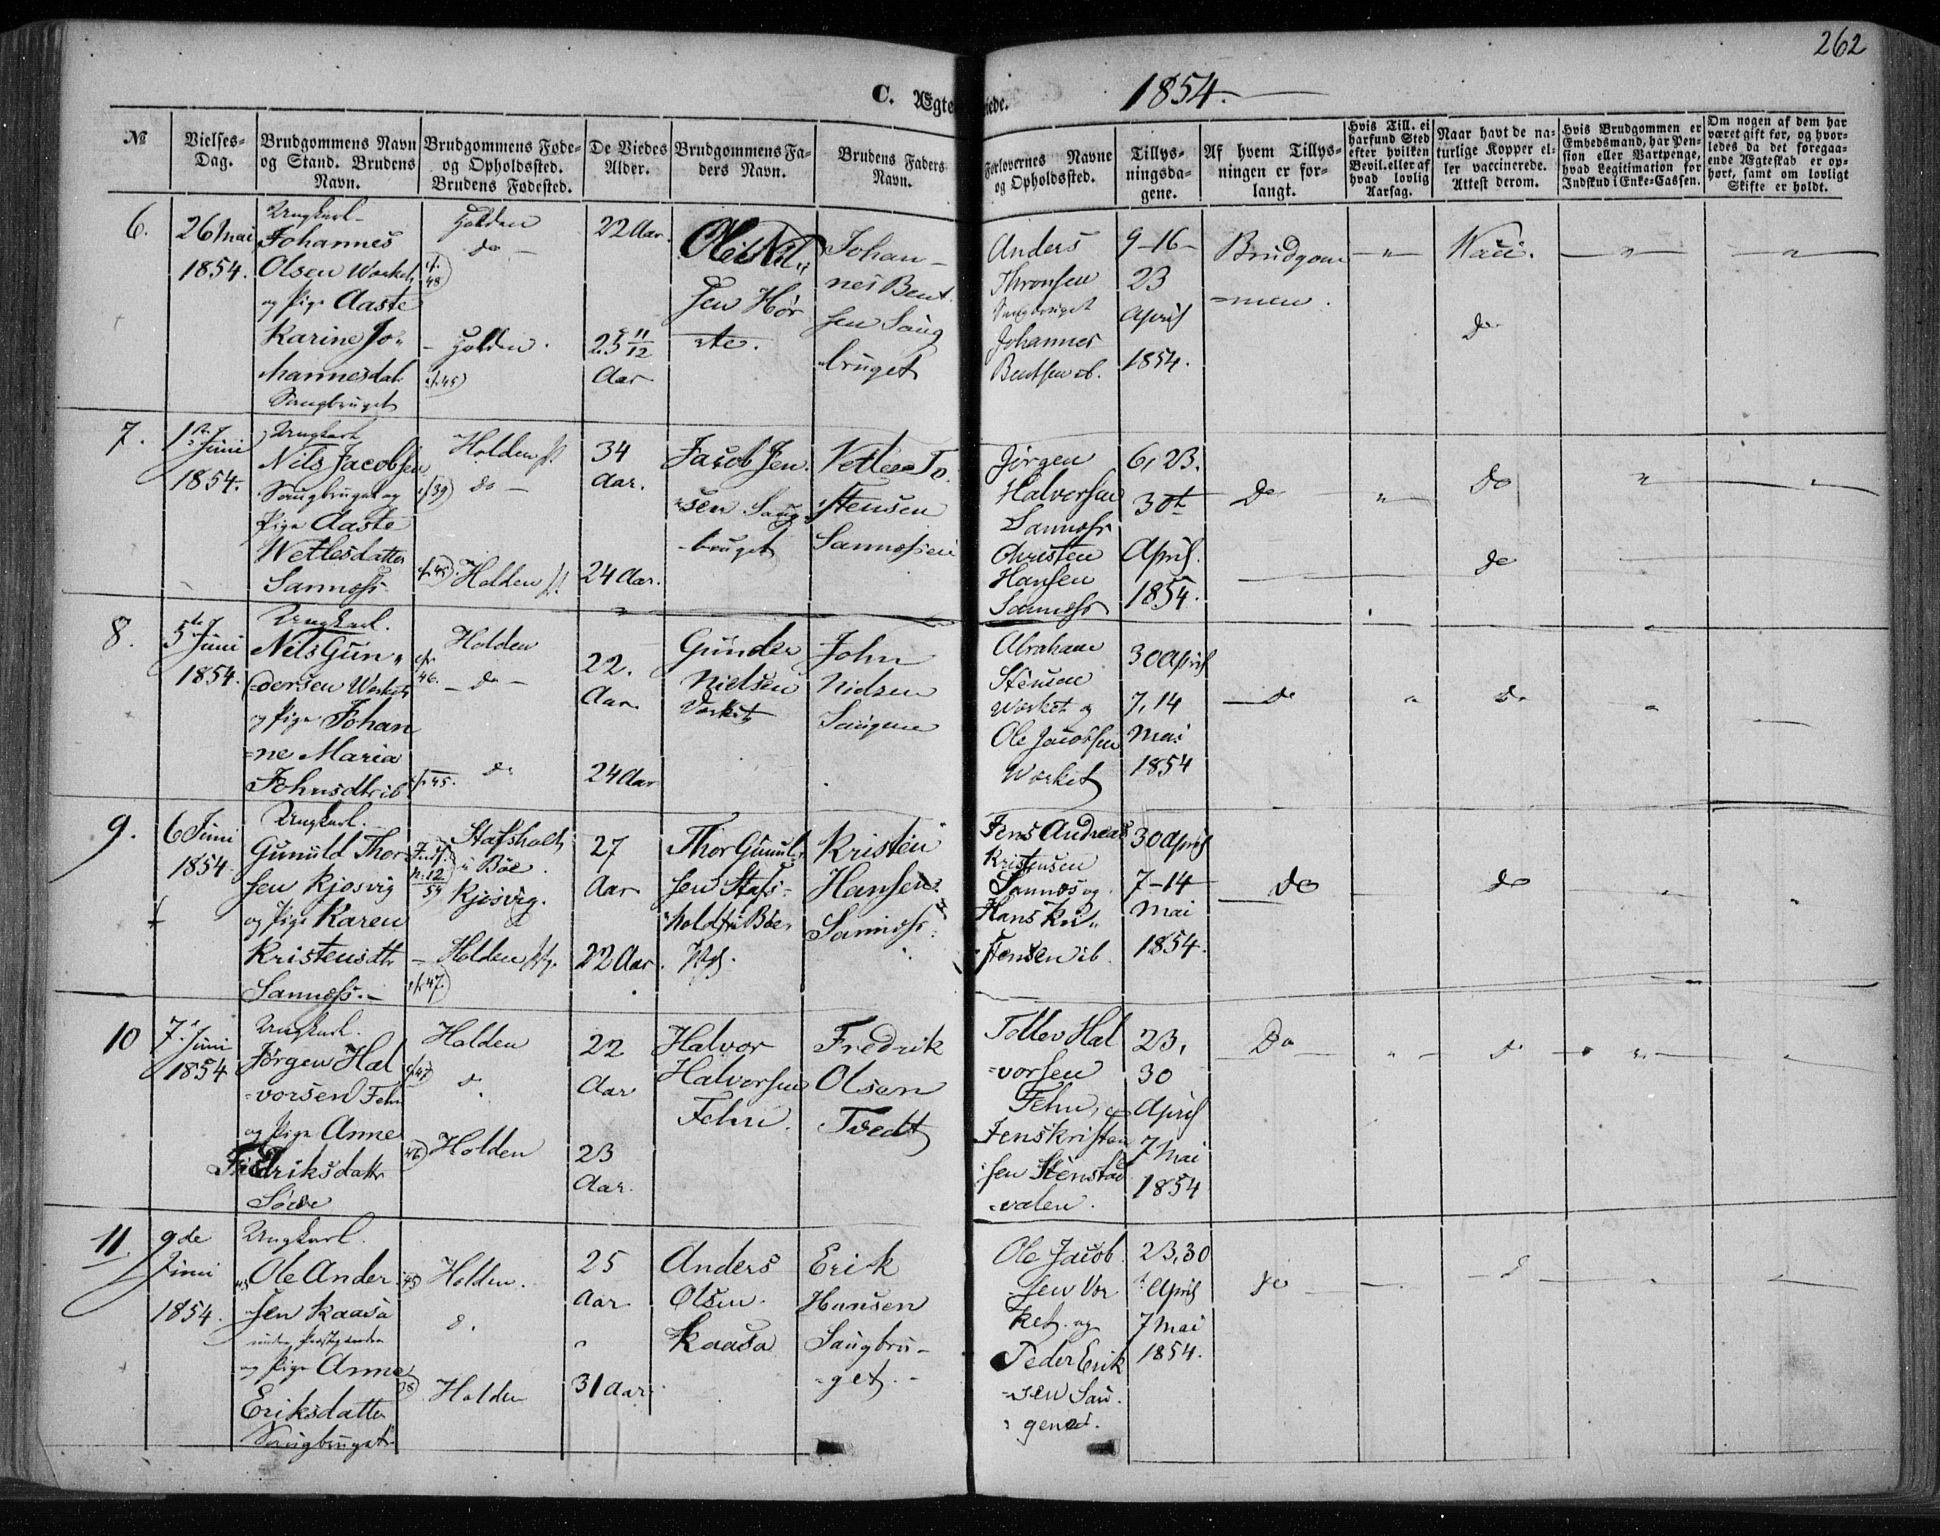 262
C. Ægteviede.
1854.
№
Vielses-
Dag.
Brudgommens Navn
og Stand. Brudens
Navn.
Brudgommens Føde-
og Opholdssted.
Brudens Fødested.
De Viedes
Alder.
Brudgommens Fa-
ders Navn.
Brudens Faders
Navn.
Forlovernes Navne
og Opholdssted.
Tillys-
ningsda-
gene.
Af hvem Tillys-
ningen er for-
langt.
Hvis Till. ei
har fund Sted
efter hvilken
Bevil. eller af
hvad lovlig
Aarsag.
Naar havt de na-
turlige Kopper el-
ler vaccinerede.
Attest derom.
Hvis Brudgommen er
Embedsmand, har Pen-
sion eller Vartpenge,
hvad Legitimation for
Indskud i Enke-Cassen.
Om nogen af dem har
været gift før, og hvor-
ledes da det foregaa-
ende Ægteskab er op-
hørt, samt om lovligt
Skifte er holdt.
6.
26 Mai
1854.
Ungkarl
Johannes
Olsen Værket
og Pige Aaste
Karine Jo-
hannesdat.
Saugbruget
Holden
do
Holden.
22 Aar.
25 11/12
Aar
Ole
sen Hør
te.
Johan-
nes Bent
sen Saug
bruget
Anders
Thronsen
Saugbruget
Johannes
Bentsen ib.
9-16-
23
April
1854.
Brudgom
=men.
Vacc.
do
7.
1ste Juni
1854.
Ungkarl
Nils Jacobsen
Saugbruget og
Pige Aaste
Wetlesdatter
Sannoss
Holden
do
Holden
34
Aar.
24 Aar.
Jacob Jen
sen Saug
bruget
Vetle To
stensen
Sannossen
Jørgen
Halvorsen
Sannoss
Christen
Hansen
Sannoss
6, 23.
30t
April
1854.
do
do
do
8.
5te Juni
1854.
Ungkarl.
Nels Gun
dersen Værket
og Pige Johan
=ne Maria
Johnsdtr ib
Holden
do
do
22.
Aar.
24 Aar
Gunder
Nielsen
Værket
John
Nielsen
Saugen
Abraham
Stensen
Værket og
Ole Jacobsen
Værket
30 April
7, 14
Mai
1854
do
do
9.
6 Juni
1854
Ungkarl.
Gunuld Thor
sen Kjosvig
og Pige Karen
Kristensdtr
Sannoss.
Stafsholt
i Bøe.
Kjosvig.
Holden
27
Aar
22 Aar.
Thor Gunul
sen Stafs-
holdt i Bøe
Kristen
Hansen
Sannoss
Jens Andreas
Kristensen
Sannos og
Hans Kri
stensen ib.
30 April
7-14
Mai
1854.
do
do
10
7. Juni
1854
Ungkarl.
Jørgen Hal
vorsen Fehn
og Pige Anne
Fredriksdatr
Søve
Holden
d.
Holden
22
Aar
23
Aar.
Halvor
Halvorsen
Fehn.
Fredrik
Olsen
Tvedt
Tollev Hal
=vorsen
Fehn, og
Jens Kristen
sen Stenstad
=valen.
23,
30
April
7 Mai
1854
Do
d
11
9de
Juni
1854.
Ungkarl.
Ole Ander
sen Kaasa
og Pige Anne
Eriksdatter
Saugbruget
Holden.
d.
Holden
25
Aar
31 Aar
Anders
Olsen
Kaasa
Erik
Hansen
Saugbru-
get.
Ole Jacob
sen Vær
ket og
Peder Erik
=sen Sau
gen ib.
23, 30
April
7 Mai
1854.
do
d